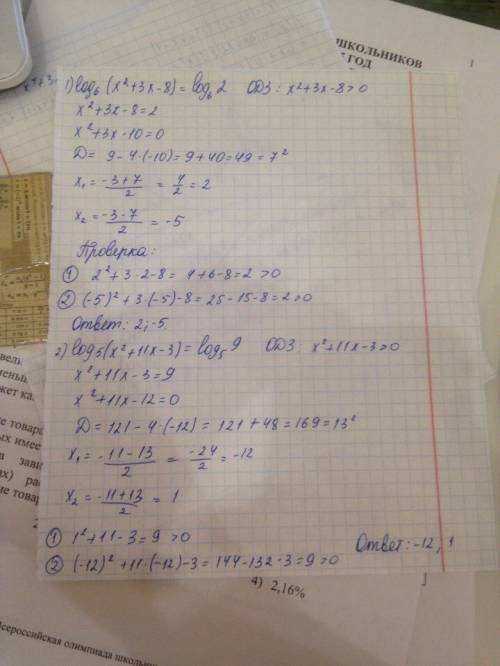 ШКОЛЬНИКОВ
ГОД
1) log₆(x²+3x-8) = log₆2 ОДЗ: x²+3x-8>0
x²+3x-8=2
x²+3x-10=0
D= 9-4·(-10)=9+40=49=7²
x₁= (-3+7)/2 = 4/2 = 2
x₂= (-3-7)/2 = -5
Проверка:
① 2²+3·2-8= 4+6-8=2>0
② (-5)²+3·(-5)-8=25-15-8=2>0
Ответ: 2; -5.
2) log₅(x²+11x-3)=log₅9 ОДЗ: x²+11x-3>0
x²+11x-3=9
x²+11x-12=0
D=121-4·(-12)=121+48=169=13²
x₁= (-11-13)/2 = -24/2 = -12
x₂= (-11+13)/2 = 1
① 1²+11-3=9>0 Ответ: -12; 1
② (-12)²+11·(-12)-3=144-132-3=9>0
4) 2,16%
сероссийская олимпиада школьн